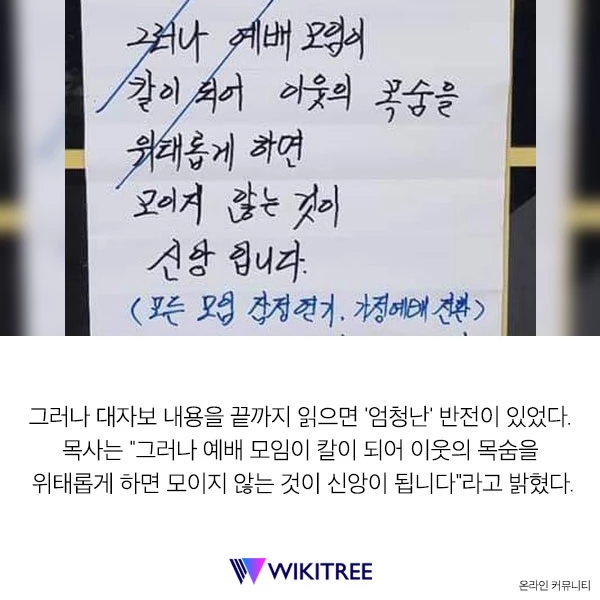 그러나 예배 모임이
칼이 되어 이웃의 목숨을
위태롭게 하면
모이지 않는 것이
신앙 입니다.
(모든 모임 잠정연기, 가정예배 전환)
그러나 대자보 내용을 끝까지 읽으면 '엄청난' 반전이 있었다.
목사는 "그러나 예배 모임이 칼이 되어 이웃의 목숨을
위태롭게 하면 모이지 않는 것이 신앙이 됩니다"라고 밝혔다.
WIKITREE
온라인 커뮤니티